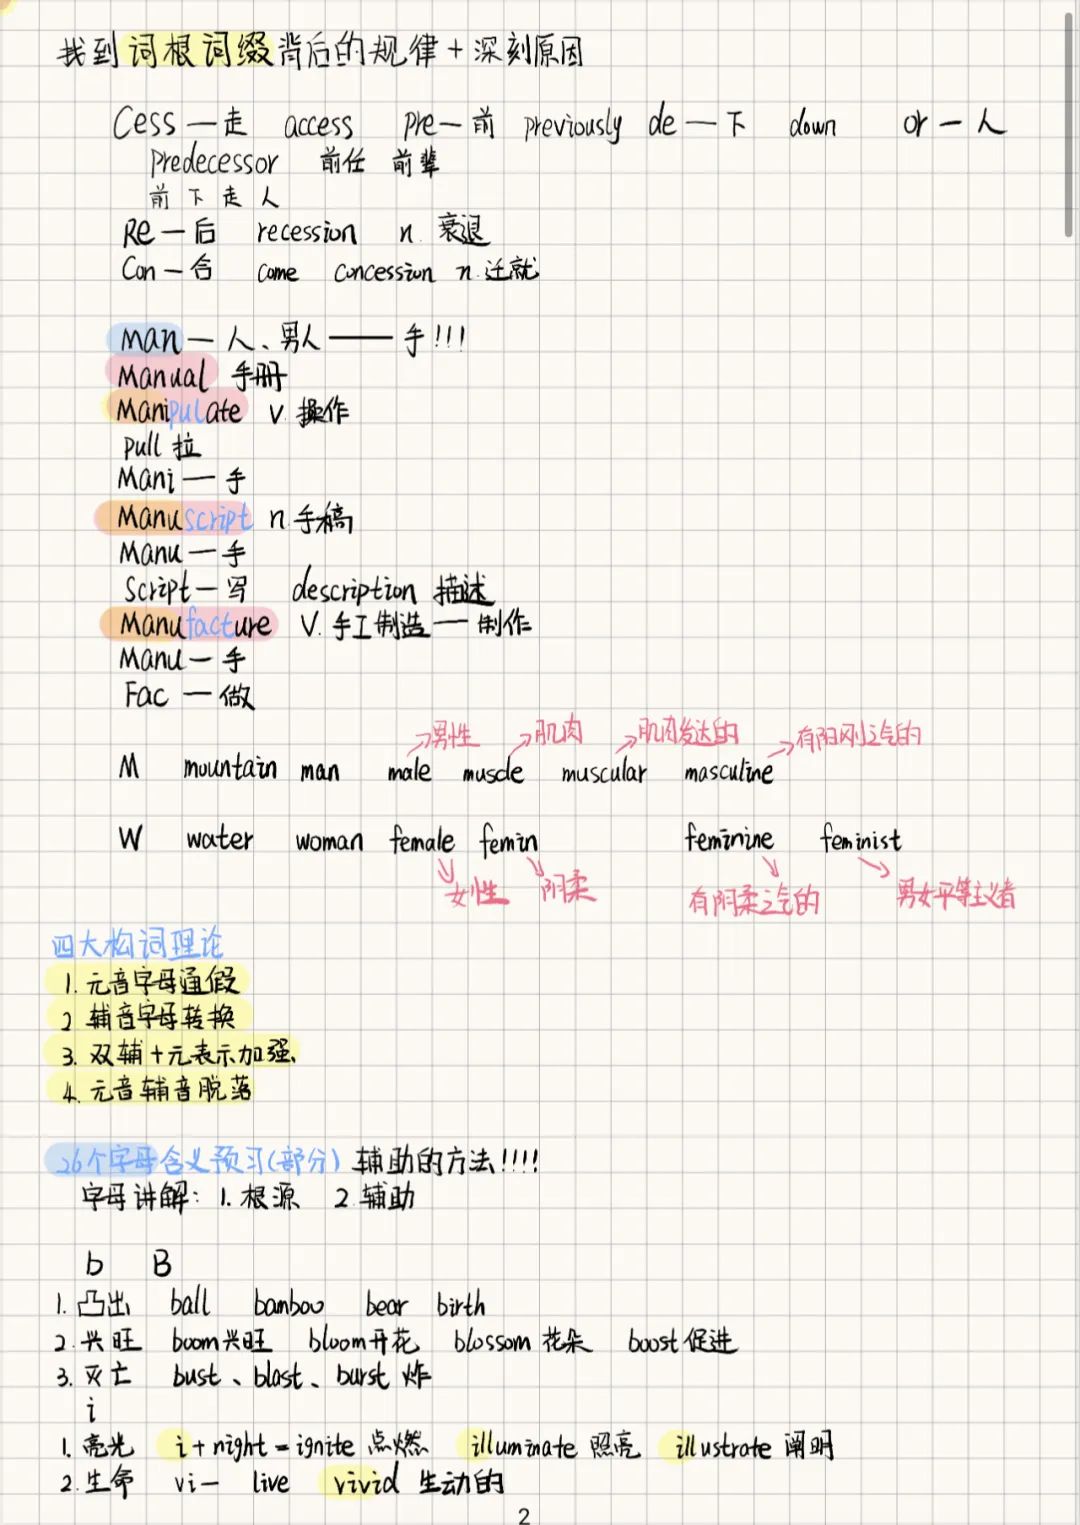 找到词根词缀背后的规律+深刻原因
Cess — 走 access pre — 前 previously de — 下 down or — 人
predecessor 前任 前辈
前 下 走 人
Re — 后 recession n. 衰退
Con — 合 come concession n. 迁就
man — 人、男人 —— 手!!!
Manual 手册
Manipulate v. 操作
pull 拉
Mani — 手
Manuscript n 手稿
Manu — 手
Script — 写 description 描述
Manufacture v. 手工制造 — 制作
Manu — 手
Fac — 做
男性 肌肉 肌肉发达的 有阳刚之气的
M mountain man male muscle muscular masculine
W water woman female femin feminine feminist
女性 阴柔 有阴柔之气的 男女平等主义者
四大构词理论
1. 元音字母通假
2 辅音字母转换
3. 双辅+元表示加强、
4. 元音辅音脱落
26个字母含义预习(部分) 辅助的方法!!!!
字母讲解: 1. 根源 2. 辅助
b B
1. 凸出 ball bamboo bear birth
2. 兴旺 boom兴旺 bloom开花 blossom 花朵 boost促进
3. 灭亡 bust、blast、burst 炸
i
1. 亮光 i+night=ignite 点燃 illuminate 照亮 illustrate 阐明
2. 生命 vi— live vivid 生动的
2